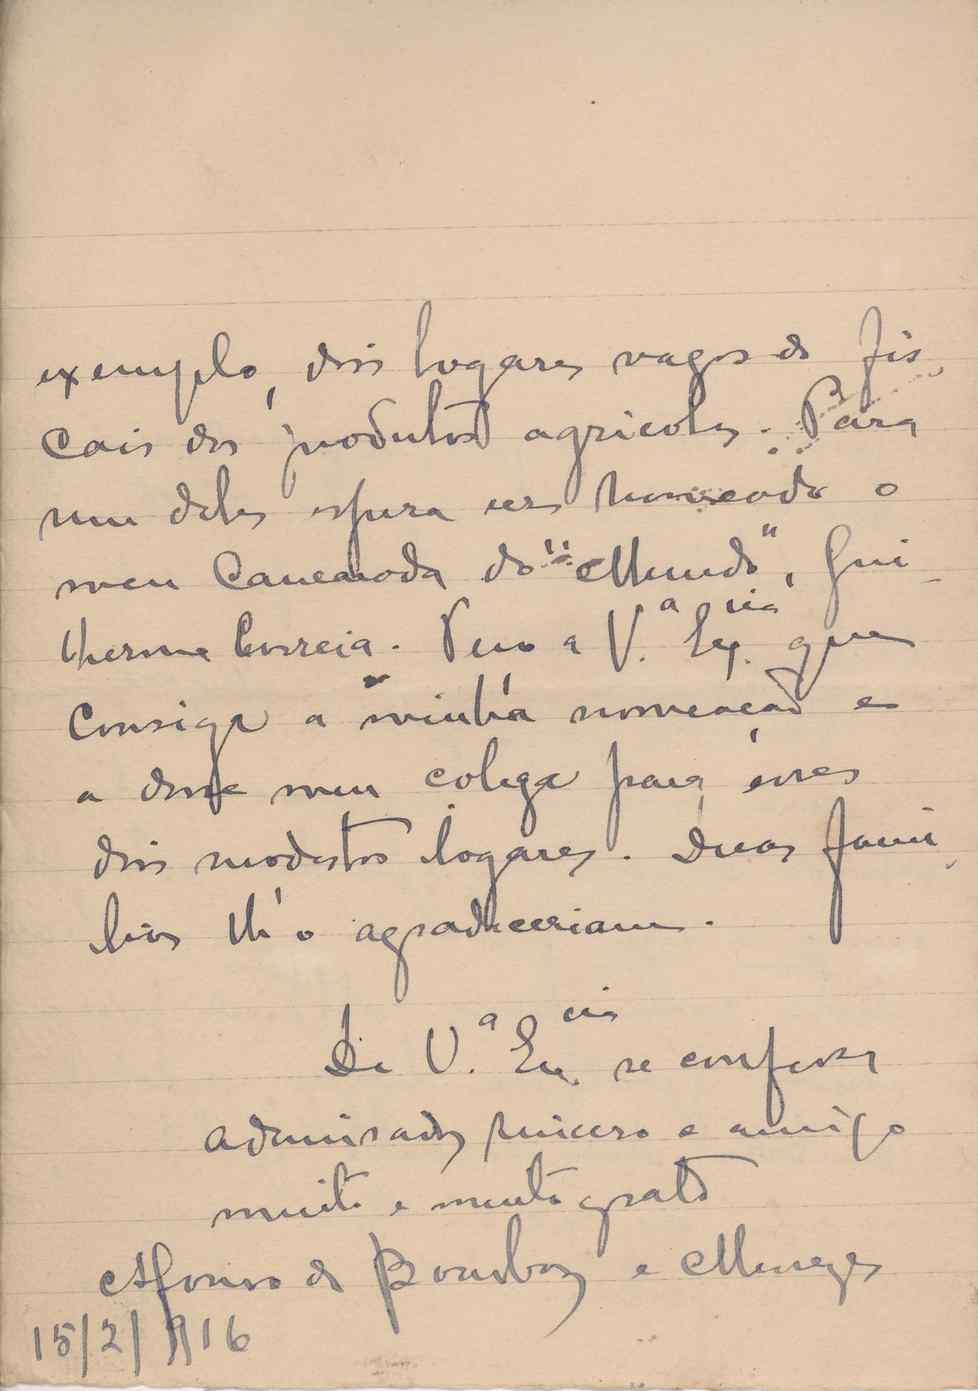 exemplo, dois logares vagos de fis-
cais dos produtos agricolas. Para
um deles espera ser nomeado o
meu camarada do "Mundo", Gui-
lherme Correia. Peço a V.ª Ex.cia que
consiga a minha nomeação e
a desse meu colega para esses
dois modestos logares. Duas fami-
lias lh'o agradeceriam.
De V.ª Ex.cia se confessa
admirador, sincero e amigo
muito e muito grato
Afonso de Bourbon e Menezes
15/2/916